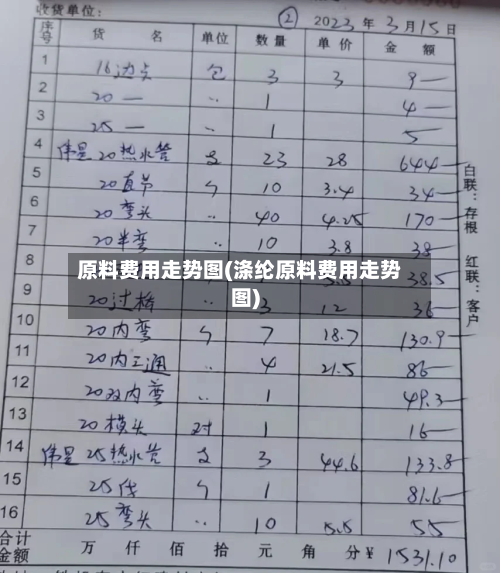 收货单位:
② 2023 年 3 月 15 日
序号 货 名 单位 数量 单价 金 额
1 16边卡 包 3 3 9—
2 20 — 〃 1 4—
3 25 — 〃 1 5
4 伟星20热水管 支 23 28 644—
5 20直节 ㄣ 10 3.4 34—
6 20弯头 〃 40 4.25 170—
7 20半弯 10 3.8 38
原料费用走势图(涤纶原料费用走势图)
38.5
9 20过桥 3 12 36
10 20内弯 ㄣ 7 18.7 130.9—
11 20内三通 〃 4 21.5 86—
12 20双内弯 〃 1 49.3—
13 20模头 对 1 16—
14 伟星25热水管 支 3 44.6 133.8
15 25 ㄣ 1 81.6—
16 25弯头 〃 10 5.5 55
合计金额 万 仟 佰 拾 元 角 分 ¥ 1531.10
白联:存根 红联:客户